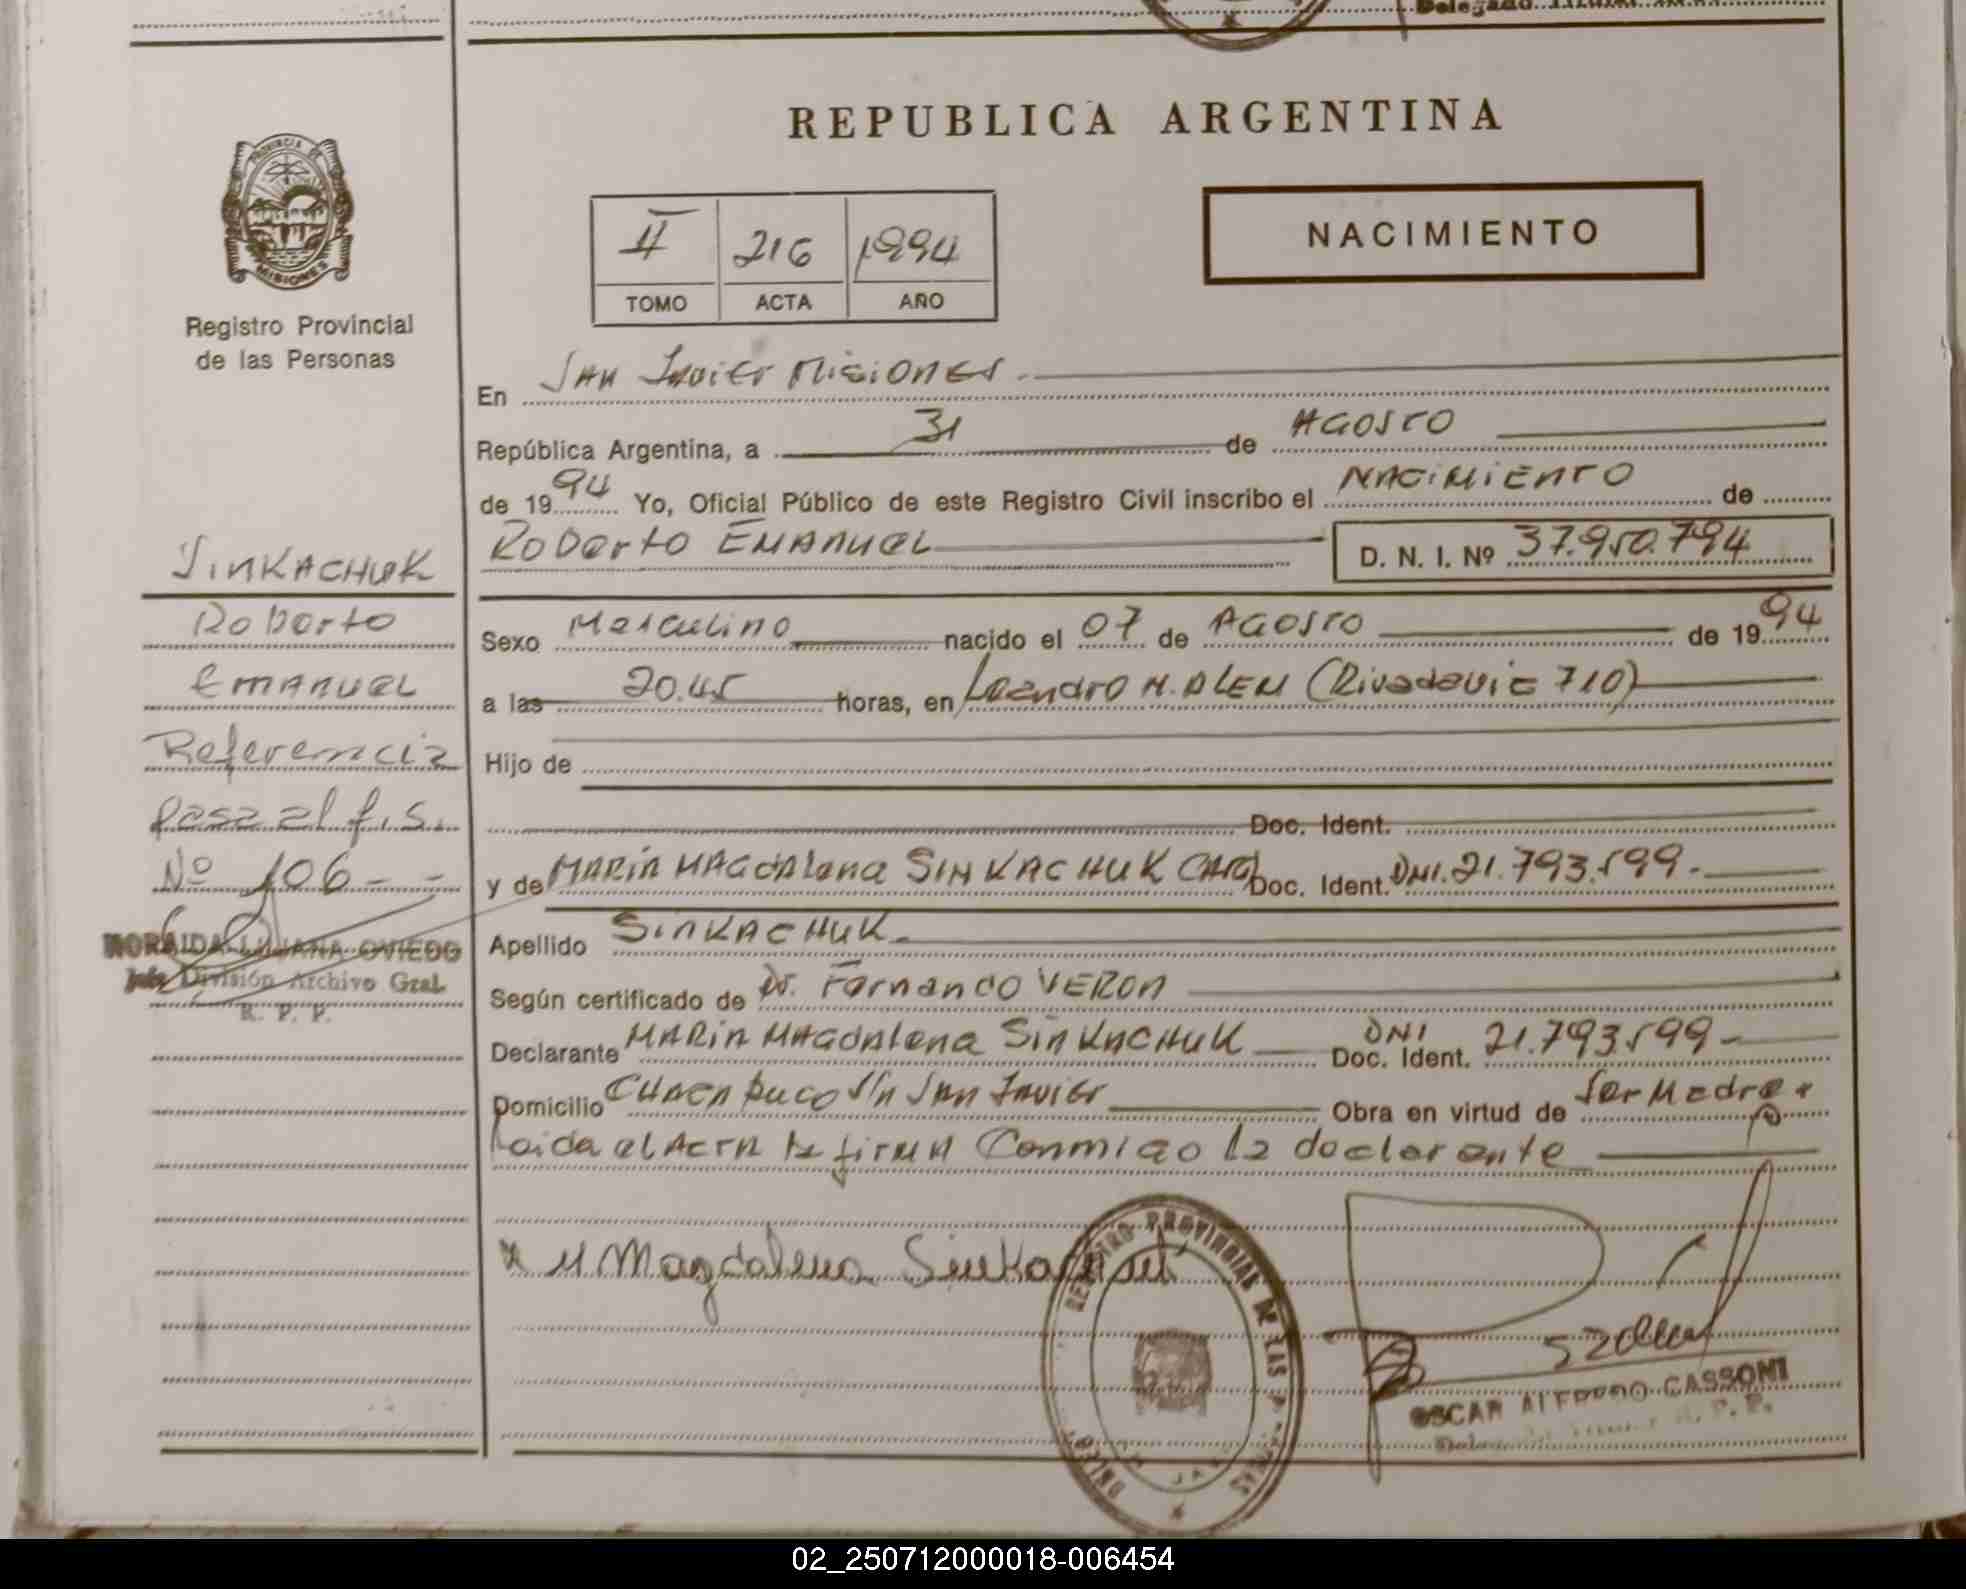 Delegado Titular
REPUBLICA ARGENTINA
PROVINCIA DE
MISIONES
Registro Provincial
de las Personas
II 216 1994
TOMO ACTA AÑO
NACIMIENTO
En San Javier Misiones
República Argentina, a 31 de Agosto
de 1994 Yo, Oficial Público de este Registro Civil inscribo el Nacimiento de
Roberto Emanuel D. N. I. Nº 37.950.794
Sexo Masculino nacido el 07 de Agosto de 1994
a las 20.45 horas, en Leandro N. Alem (Rivadavia 710)
Hijo de
Doc. Ident.
y de Maria Magdalena SINKACHUK Doc. Ident. DNI. 21.793.599.-
Apellido SINKACHUK.-
Según certificado de Dr. Fernando VERON
Declarante Maria Magdalena SINKACHUK Doc. Ident. DNI 21.793.599-
Domicilio Chacabuco S/n San Javier Obra en virtud de Ser Madre
Leida el Acta la firma Conmigo la declarante
x M Magdalena Sinkachuk
SINKACHUK
Roberto
Emanuel
Referencia
pasa al f. S.
Nº 106--
NORAIDA LILIANA OVIEDO
Jefe División Archivo Gral.
R. P. P.
REGISTRO PROVINCIAL DE LAS PERSONAS
OSCAR ALFREDO CASSONI
R. P. P.
02_250712000018-006454